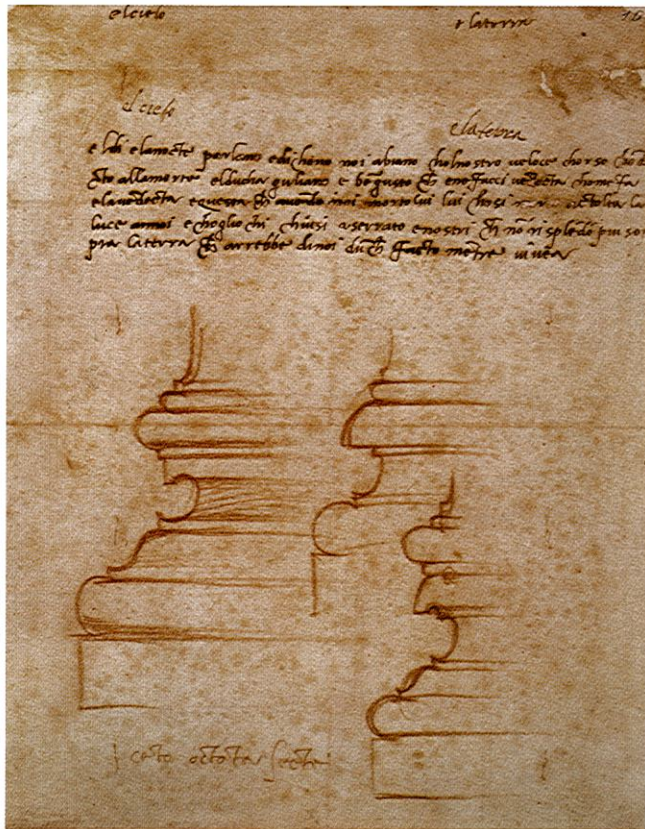 el cielo e la terra 16
el cielo
e la terra
el dì e la nocte parlano e dichono noi abiano chol nostro veloce chorso chō
docto alla morte el ducha guliano e bē gusto che e ne facci vēdecta chome fa
e la vēdecta e questa che avendo noi morto lui lui chosi morto a tolta la
luce a noi e chogli ochi chiusi a serrato e nostri che nō risplēdō piu so
pra la terra che arrebbe di noi dūche facto mētre vivea
cēto octota secte